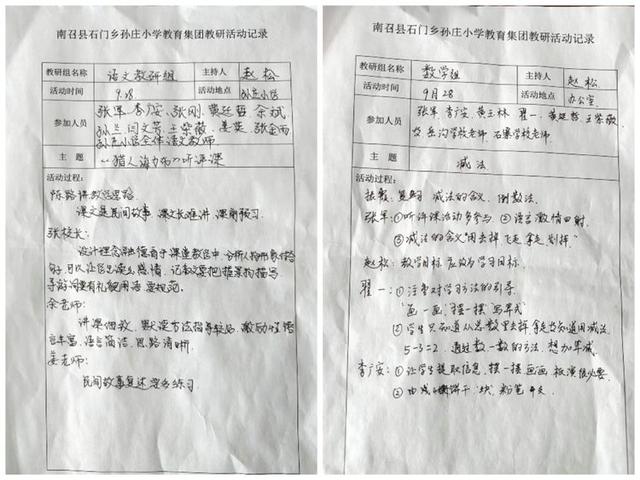 南召县石门乡孙庄小学教育集团教研活动记录
教研组名称 语文教研组 主持人 赵松
活动时间 9.28 活动地点
参加人员 张军、李广安、张刚、黄廷哲 余斌
孙兰 闫文芳 王紫薇、姜英、张金雨
全体语文教师
主 题 "猎人海力布"听评课
活动过程:
陈路讲教学思路
课文是民间故事 课文长难讲 课前预习
张校长:
设计理念融惯商于课堂教学中 分析人物形象
导游词要有礼貌用语 要规范。
余老师:
讲课细致,默读方法指导较好 激励性语
言丰富,语言简洁,思路清晰
姜老师:
民间故事复述 要多练习
南召县石门乡孙庄小学教育集团教研活动记录
教研组名称 数学组 主持人 赵松
活动时间 9月28 活动地点 办公室
参加人员 张军 李广安 黄玉林 翟一 黄廷哲 王紫薇
岳沟学校老师 石寨学校老师
主 题 减法
活动过程:
减法的含义
张军:①听评课活动多参与 ②语言激情四射
③减法的含义"用去掉 飞走 拿走 划掉"
赵松:教学目标 应改为学习目标
翟一:①注意对学习方法的引导
"画一画""摆一摆"写算式
②学生只知道从总数里去掉 拿走 才知道用减法
5-3=2 通过数一数的方法 想加算减
李广安:①让学生提取信息 摆一摆 画画 板演很必要